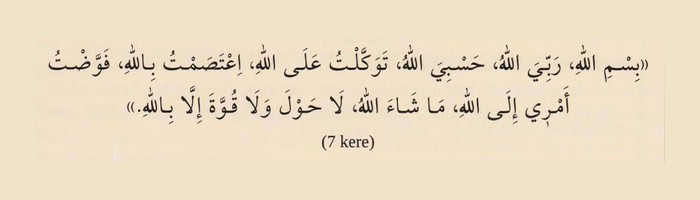 «بِسْمِ اللهِ، رَبِّيَ اللهُ، حَسْبِيَ اللهُ، تَوَكَّلْتُ عَلَى اللهِ، اِعْتَصَمْتُ بِاللهِ، فَوَّضْتُ
أَمْرِي إِلَى اللهِ، مَا شَاءَ اللهُ، لَا حَوْلَ وَلَا قُوَّةَ إِلَّا بِاللهِ.»
(7 kere)